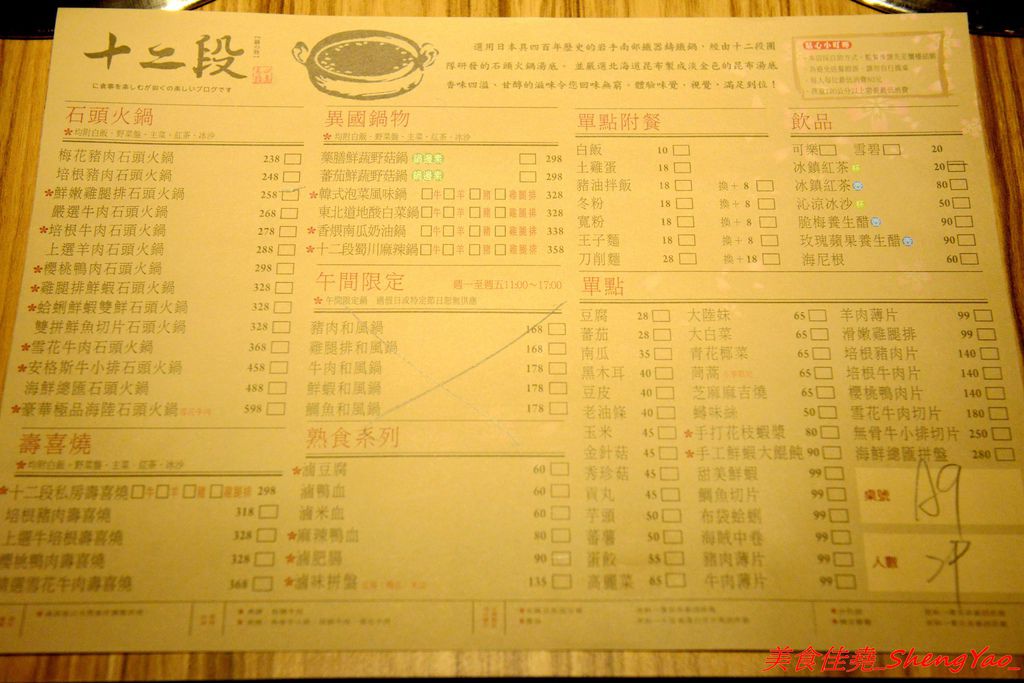 十二段
に食事を楽しむが如くの楽しいブログです
選用日本具四百年歷史的岩手南部鐵器鑄鐵鍋，經由十二段團
隊研發的石頭火鍋湯底。並嚴選北海道昆布製成淡金色的昆布湯底
香味四溢，甘醇的滋味令您回味無窮。體驗味覺，視覺，滿足到位！
貼心小叮嚀
石頭火鍋
*均附白飯、野菜盤、主菜、紅茶、冰沙
梅花豬肉石頭火鍋 238
培根豬肉石頭火鍋 248
*鮮嫩雞腿排石頭火鍋 258
嚴選牛肉石頭火鍋 268
*培根牛肉石頭火鍋 278
上選羊肉石頭火鍋 288
*櫻桃鴨肉石頭火鍋 298
*雞腿排鮮蝦石頭火鍋 328
*蛤蜊鮮蝦雙鮮石頭火鍋 328
雙拼鮮魚切片石頭火鍋 328
*雪花牛肉石頭火鍋 368
*安格斯牛小排石頭火鍋 458
海鮮總匯石頭火鍋 488
*豪華極品海陸石頭火鍋 598
壽喜燒
*均附白飯、野菜盤、主菜、紅茶、冰沙
*十二段私房壽喜燒 牛 羊 豬 雞腿排 298
培根豬肉壽喜燒 318
上選牛培根壽喜燒 328
櫻桃鴨肉壽喜燒 328
精選雪花牛肉壽喜燒 368
異國鍋物
*均附白飯、野菜盤、主菜、紅茶、冰沙
藥膳鮮蔬野菇鍋 鍋邊素 298
蕃茄鮮蔬野菇鍋 鍋邊素 298
*韓式泡菜風味鍋 牛 羊 豬 雞腿排 328
東北道地酸白菜鍋 牛 羊 豬 雞腿排 328
*香椴南瓜奶油鍋 牛 羊 豬 雞腿排 338
*十二段蜀川麻辣鍋 牛 羊 豬 雞腿排 358
午間限定 週一至週五11:00~17:00
*午間限定鍋 遇假日或特定節日恕無供應
豬肉和風鍋 168
雞腿排和風鍋 168
牛肉和風鍋 178
鮮蝦和風鍋 178
鯛魚和風鍋 178
熟食系列
*滷豆腐 60
滷鴨血 60
滷米血 60
*麻辣鴨血 80
*滷肥腸 90
*滷味拼盤 135
單點附餐
白飯 10
土雞蛋 18
豬油拌飯 18 換+8
冬粉 18 換+8
寬粉 18 換+8
王子麵 18 換+8
刀削麵 28 換+18
飲品
可樂 雪碧 20
冰鎮紅茶 杯 20
冰鎮紅茶 80
沁涼冰沙 杯 50
脆梅養生醋 90
玫瑰蘋果養生醋 90
海尼根 60
單點
豆腐 28
蕃茄 28
南瓜 35
黑木耳 40
豆皮 40
老油條 40
玉米 45
金針菇 45
秀珍菇 45
貢丸 45
芋頭 50
蕃薯 50
蛋餃 55
高麗菜 65
大陸妹 65
大白菜 65
青花椰菜 65
茼蒿 65
芝麻麻吉燒 65
蟳味絲 65
*手打花枝蝦漿 80
*手工鮮蝦大餛飩 90
甜美鮮蝦 99
鯛魚切片 99
布袋蛤蜊 99
海賊中卷 99
豬肉薄片 99
牛肉薄片 99
羊肉薄片 99
滑嫩雞腿排 99
培根豬肉片 140
培根牛肉片 140
櫻桃鴨肉片 140
雪花牛肉切片 180
無骨牛小排切片 250
海鮮總匯拼盤 280
桌號 A9
人數 2P
美食佳堯_ShengYao_